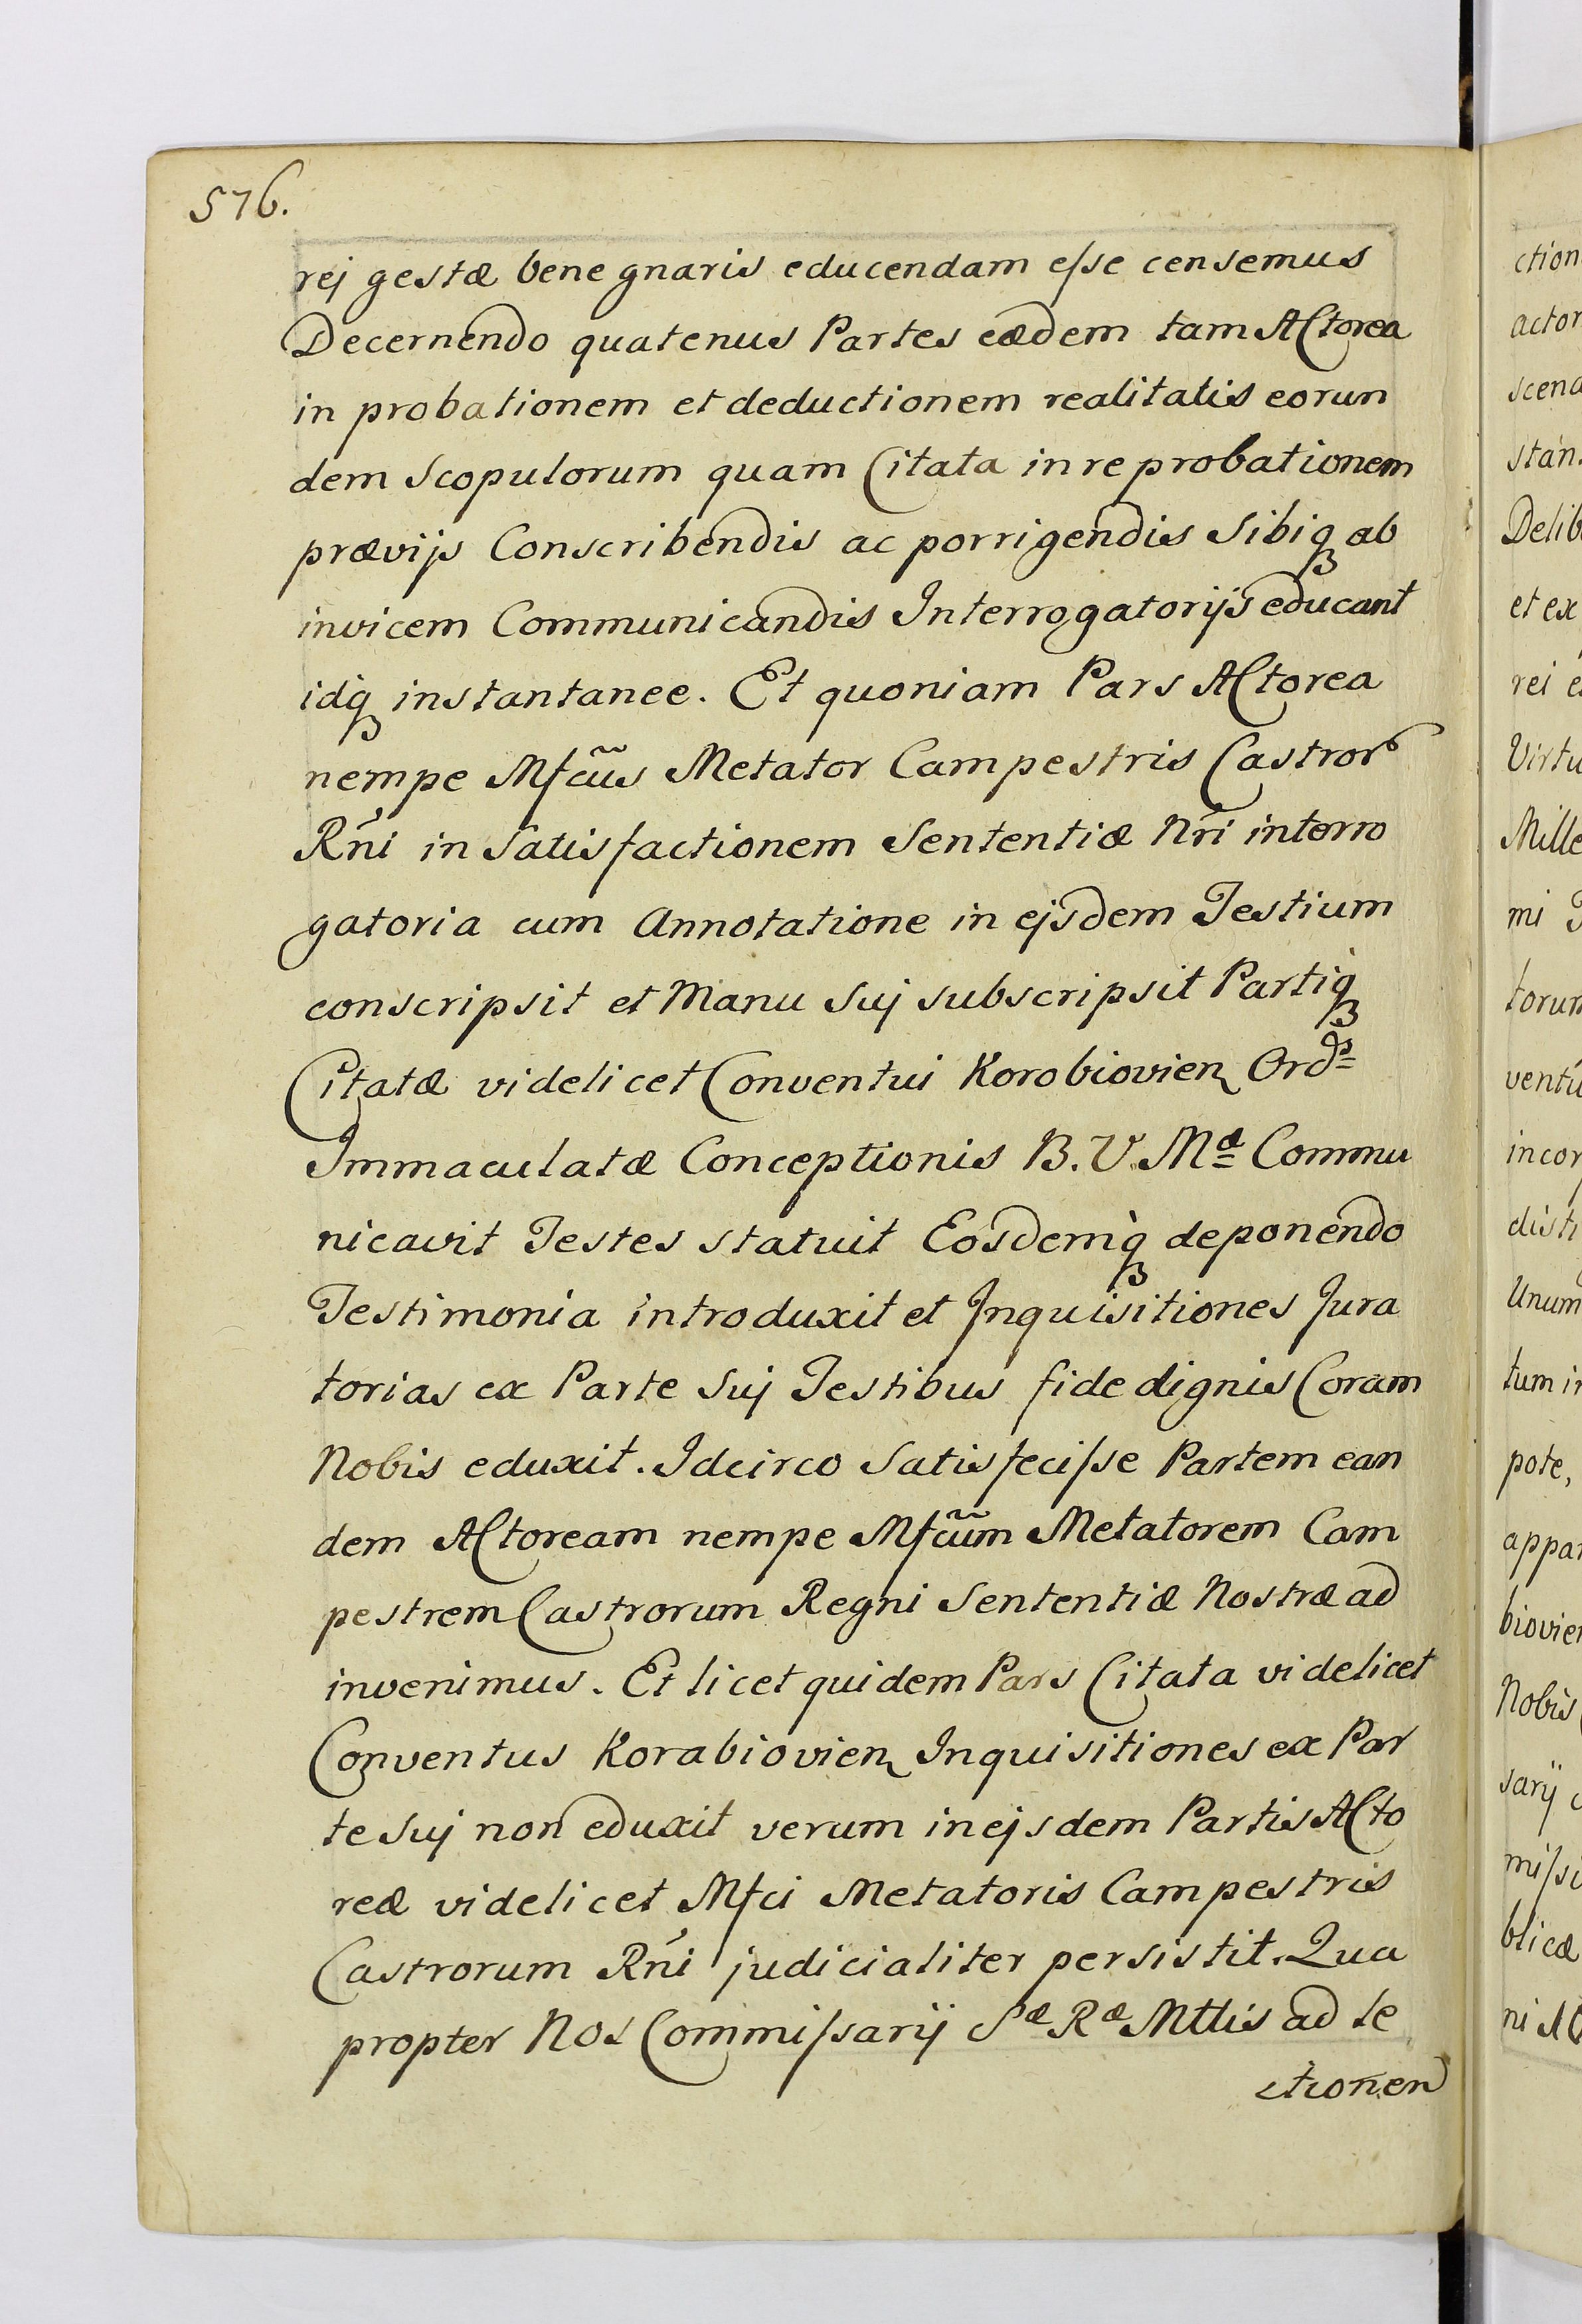 576.
rej gestæ bene gnaris educendam eſse censemus
Decernendo quatenus Partes eædem tam Actorea
in probationem et deductionem realitatis eorun
dem Scopulorum quam Citata in reprobationem
prævijs Conscribendis ac porrigendis Sibiqꝫ ab
invicem Communicandis Interrogatorijs educant
idqꝫ instantanee. Et quoniam Pars Actorea
nempe Mfcũs Metator Campestris Castror
Rńi in Satisfactionem Sententiæ Nri interro
gatoria cum Annotatione in ejsdem Testium
conscripsit et Manu Suj subscripsit Partiqꝫ
Citatæ videlicet Conventui Korobiovien Ords
Immaculatæ Conceptionis B. V. Mæ Commu
nicavit Testes statuit Eosdemqꝫ deponendo
Testimonia introduxit et Inquisitiones Jura
torias ex Parte Suj Testibus fide dignis Coram
Nobis eduxit. Idcirco Satisfeciſse Partem ean
dem Actoream nempe Mfcũm Metatorem Cam
pestrem Castrorum Regni Sententiæ Nostræ ad
invenimus. Et licet quidem Pars Citata videlicet
Conventus Korabiovien Inquisitiones ex Par
te Suj non eduxit verum in ejsdem Partis Acto
reæ videlicet Mfci Metatoris Campestris
Castrorum Rńi judicialiter persistit. Qua
propter Nos Commiſsarij Sæ Ræ Mttis ad le
ctionem
ction
actor
scena
stan
Delib
et ex
rei e
Virtu
Mille
mi
torum
ventu
incor
disti
Unum
tum in
pote,
appar
biovien
Nobis
sarij
miſsi
blicæ
ni